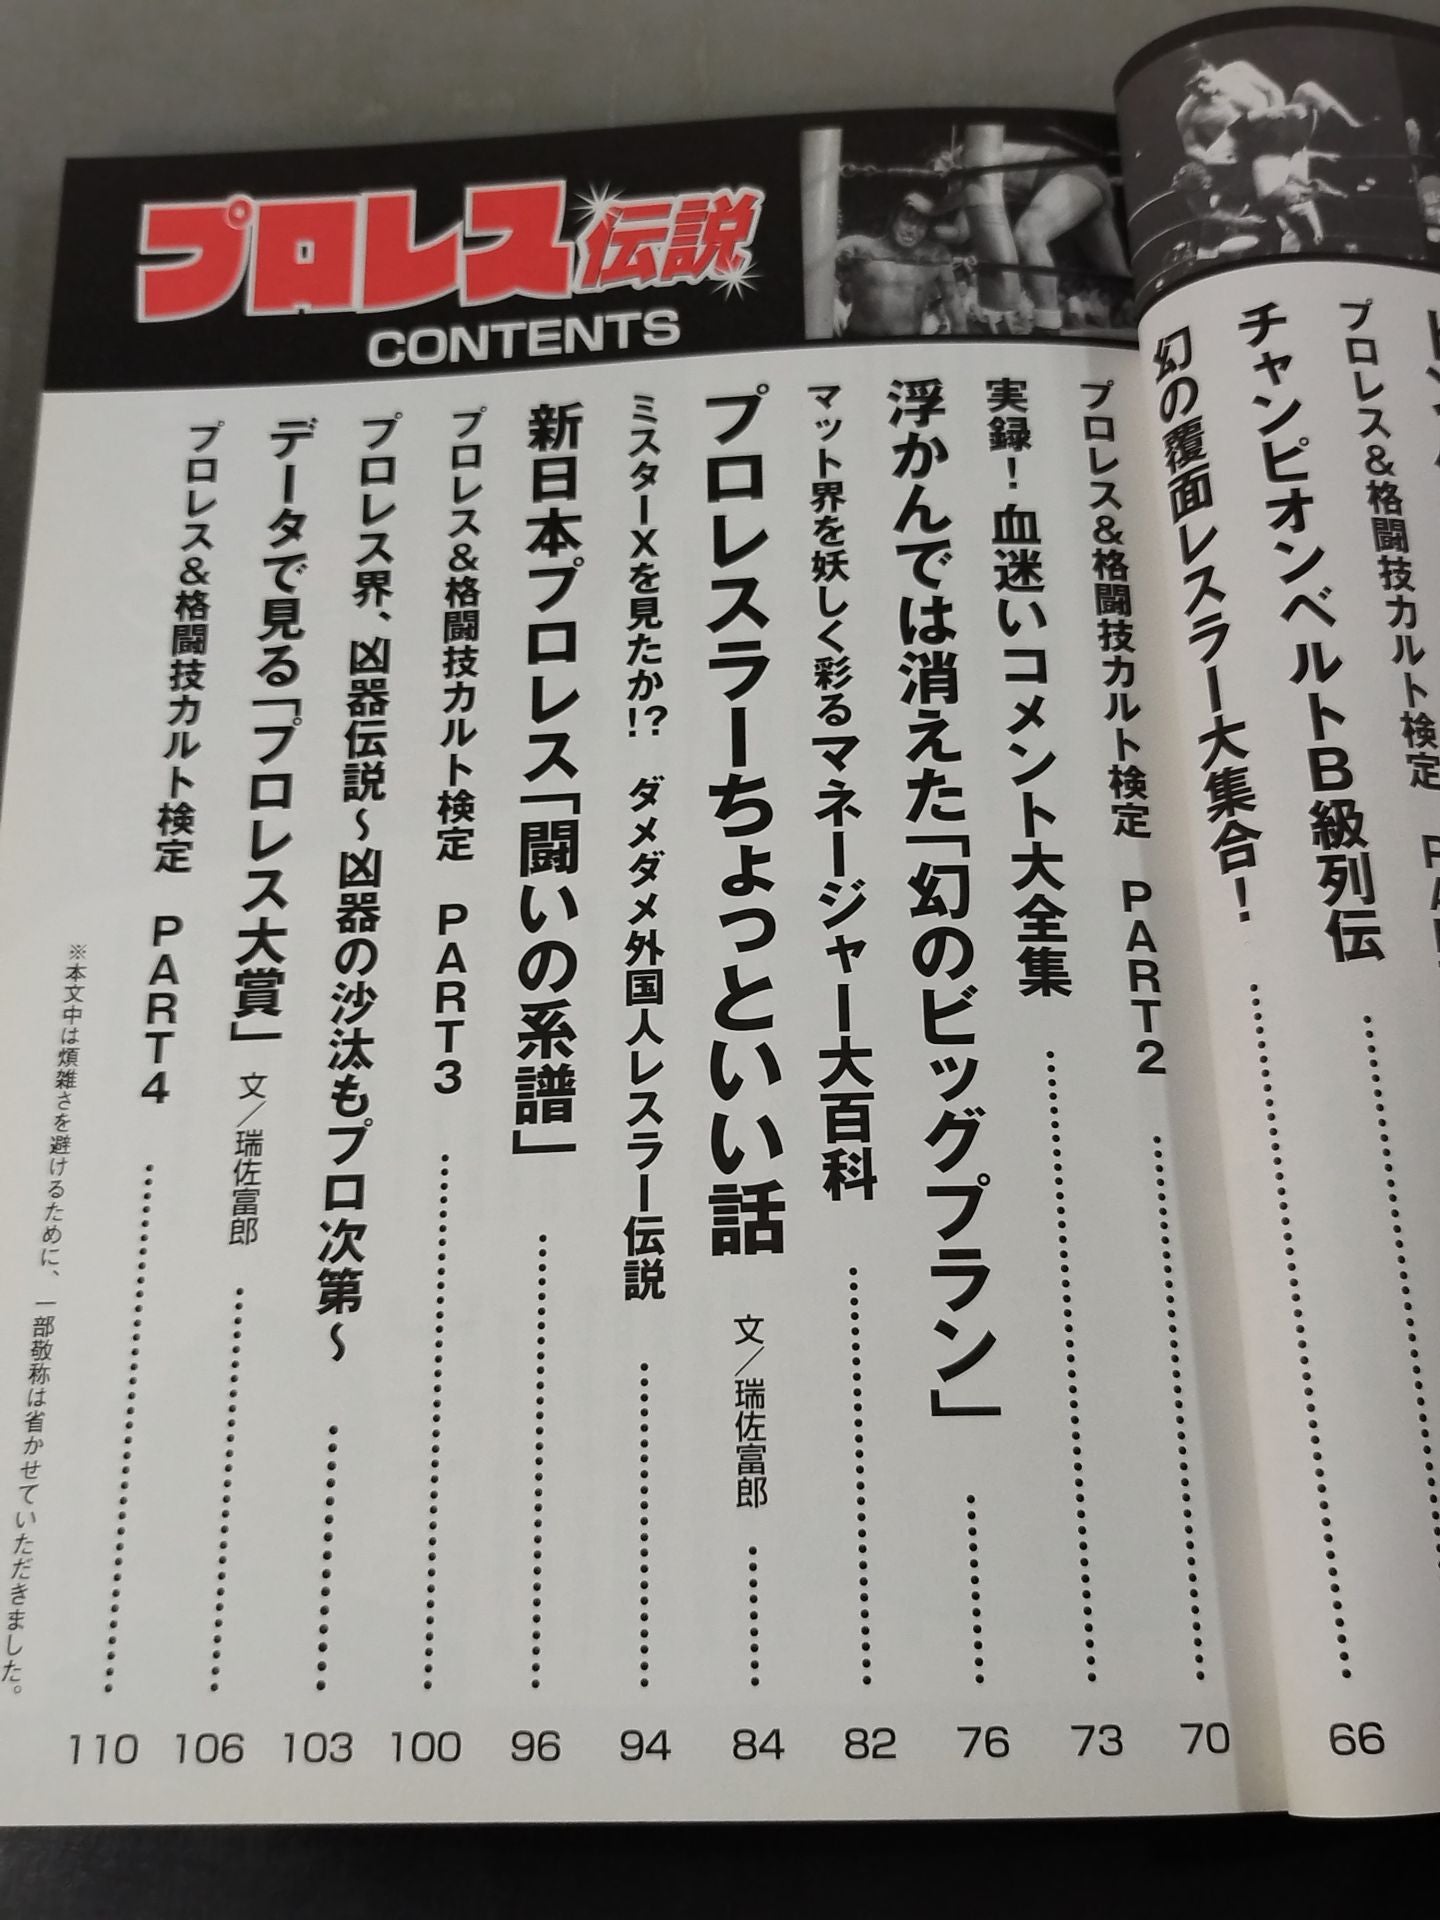 プロレス伝説
CONTENTS
プロレス&格闘技カルト検定
チャンピオンベルトB級列伝
66
幻の覆面レスラー大集合!
プロレス&格闘技カルト検定 PART2
70
実録!血迷いコメント大全集
73
浮かんでは消えた「幻のビッグプラン」
76
マット界を妖しく彩るマネージャー大百科
82
プロレスラーちょっといい話 文/瑞佐富郎
84
ミスターXを見たか!? ダメダメ外国人レスラー伝説
94
新日本プロレス「闘いの系譜」
96
プロレス&格闘技カルト検定 PART3
100
プロレス界、凶器伝説~凶器の沙汰もプロ次第~
103
データで見る「プロレス大賞」 文/瑞佐富郎
106
プロレス&格闘技カルト検定 PART4
110
※本文中は煩雑さを避けるために、一部敬称は省かせていただきました。